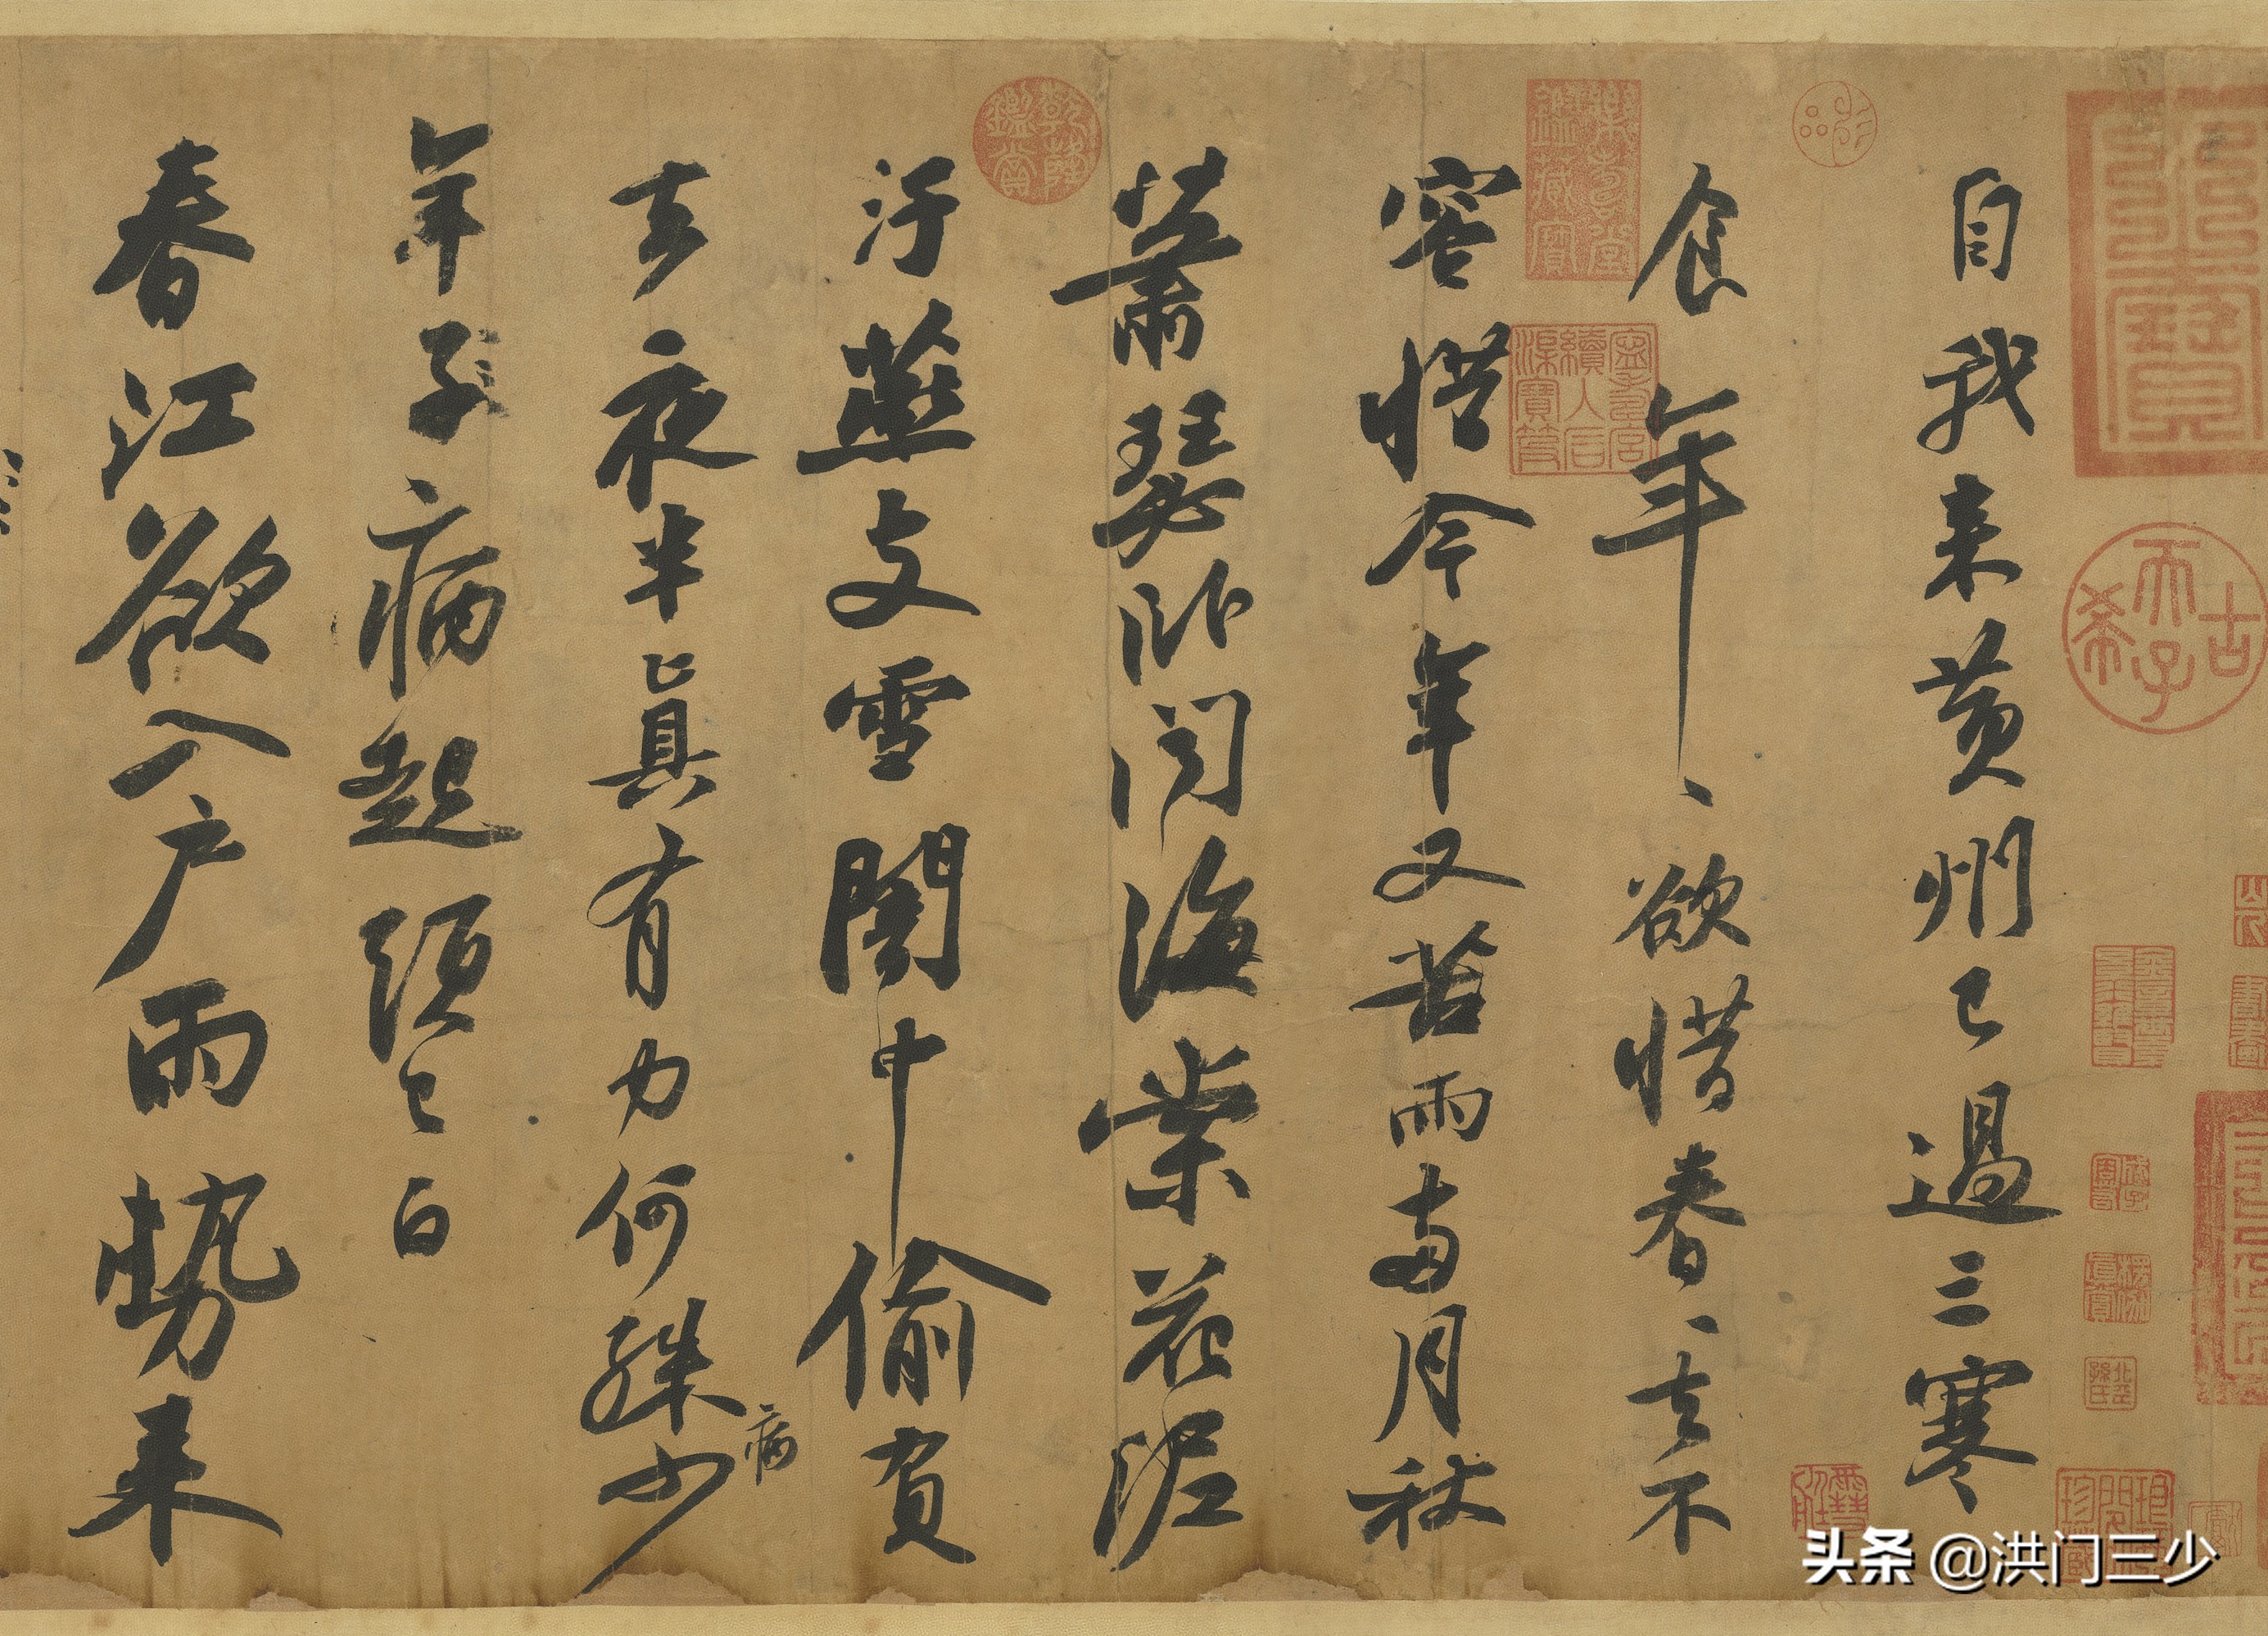 自我来黄州已過三寒
食年、欲惜春、去不
容惜今年又苦雨兩月秋
蕭瑟卧聞海棠花泥
汙燕支雪闇中偷負
去夜半真有力何殊少
病
年子病起須已白
春江欲入户雨勢来
古希天子
乾隆鑑賞
头条 @洪门三少